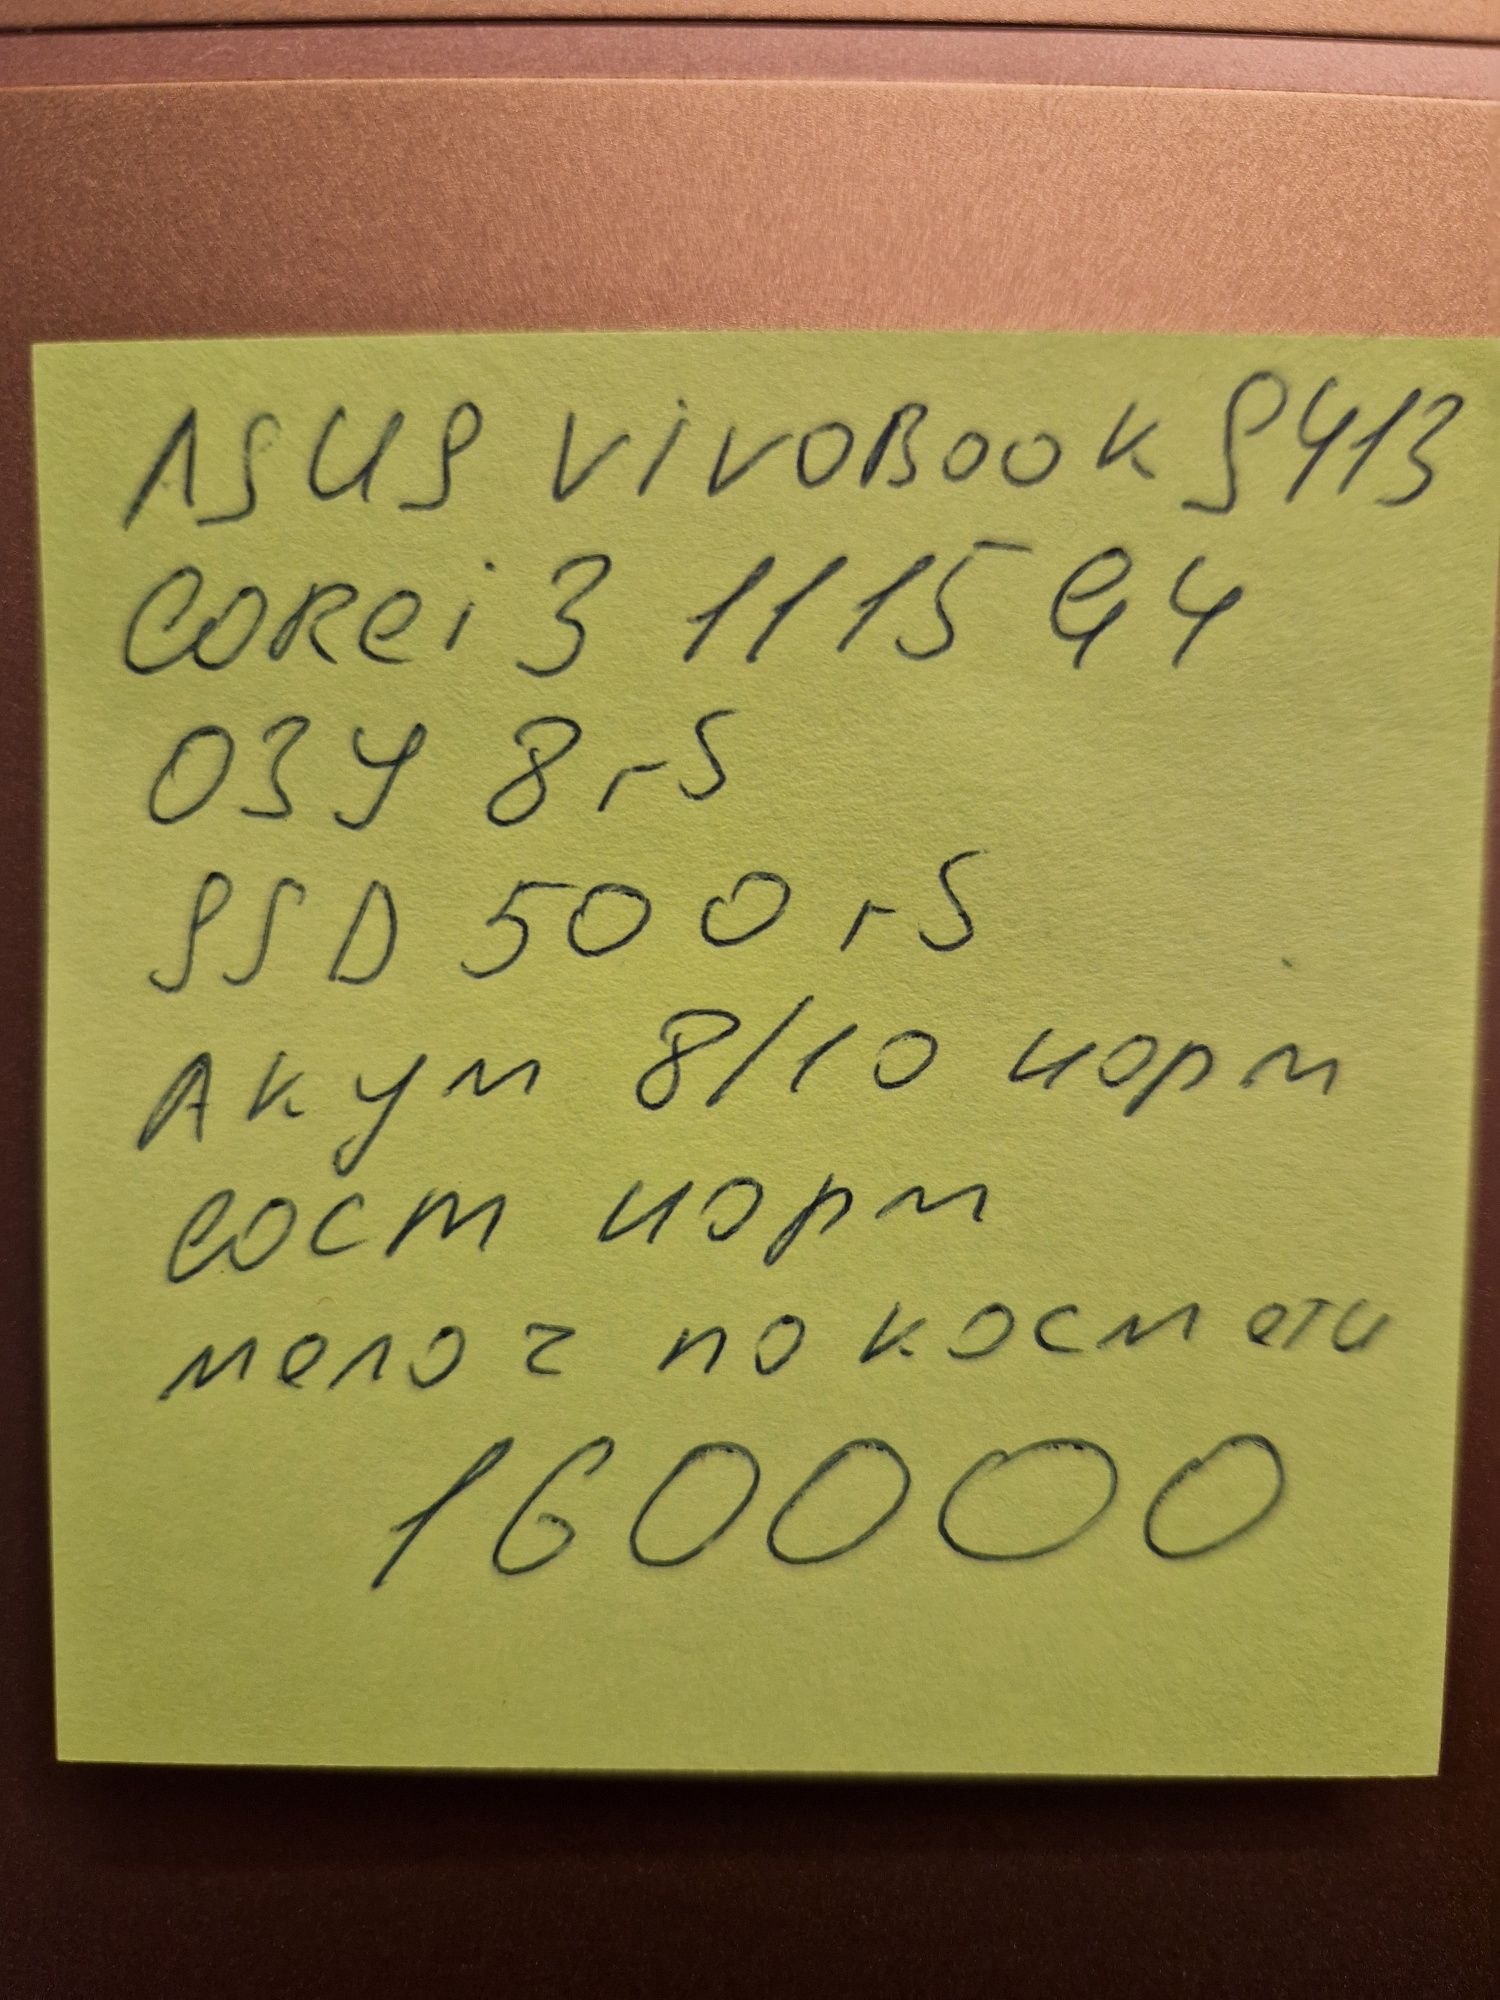 ASUS VivoBook S413
CORei3 1115G4
ОЗУ 8гб
SSD 500гб
Акум 8/10 норм
сост норм
мелоч по космети
160000